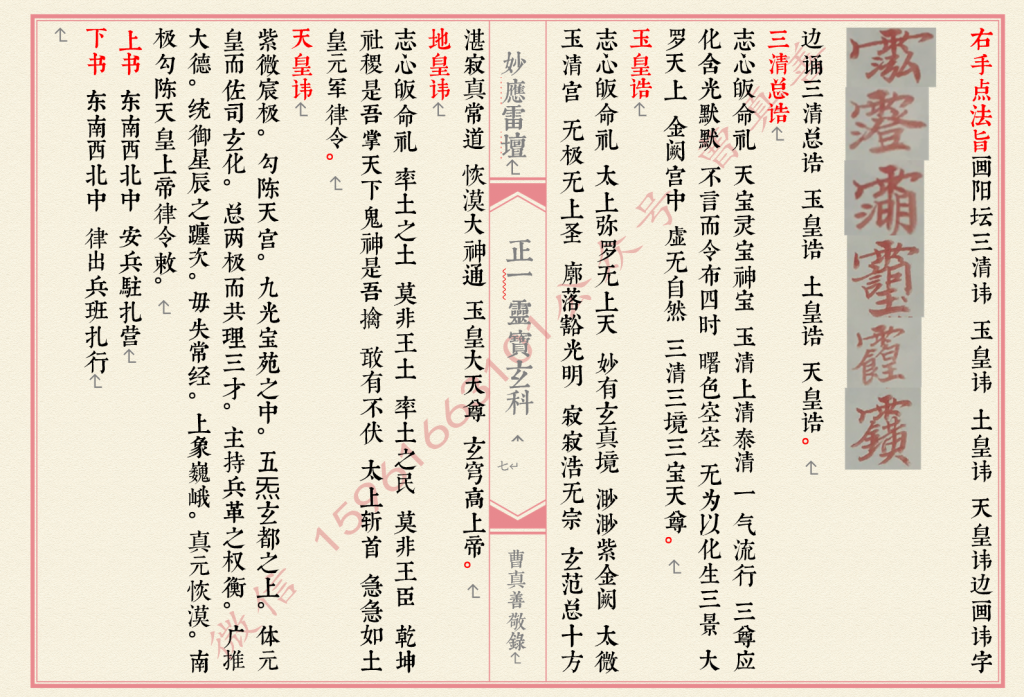 右手点法旨画阳坛三清讳 玉皇讳 土皇讳 天皇讳边画讳字
边诵三清总诰 玉皇诰 土皇诰 天皇诰。
三清总诰
志心皈命礼 天宝灵宝神宝 玉清上清泰清 一气流行 三尊应
化含光默默 不言而令布四时 曙色空空 无为以化生三景 大
罗天上 金阙宫中 虚无自然 三清三境三宝天尊。
玉皇诰
志心皈命礼 太上弥罗无上天 妙有玄真境 渺渺紫金阙 太微
玉清宫 无极无上圣 廓落豁光明 寂寂浩无宗 玄范总十方
妙應雷壇
正一 靈寶玄科
七
曹真善敬錄
湛寂真常道 恢漠大神通 玉皇大天尊 玄穹高上帝。
地皇讳
志心皈命礼 率土之土 莫非王土 率土之民 莫非王臣 乾坤
社稷是吾掌 天下鬼神是吾擒 敢有不伏 太上斩首 急急如土
皇元军律令。
天皇讳
紫微宸极。勾陈天宫。九光宝苑之中。五炁玄都之上。体元
皇而佐司玄化。总两极而共理三才。主持兵革之权衡。广推
大德。统御星辰之躔次。毋失常经。上象巍峨。真元恢漠。南
极勾陈天皇上帝律令敕。
上书 东南西北中 安兵駐扎营
下书 东南西北中 律出兵班扎行
微信 15961663101公众号 曹真善